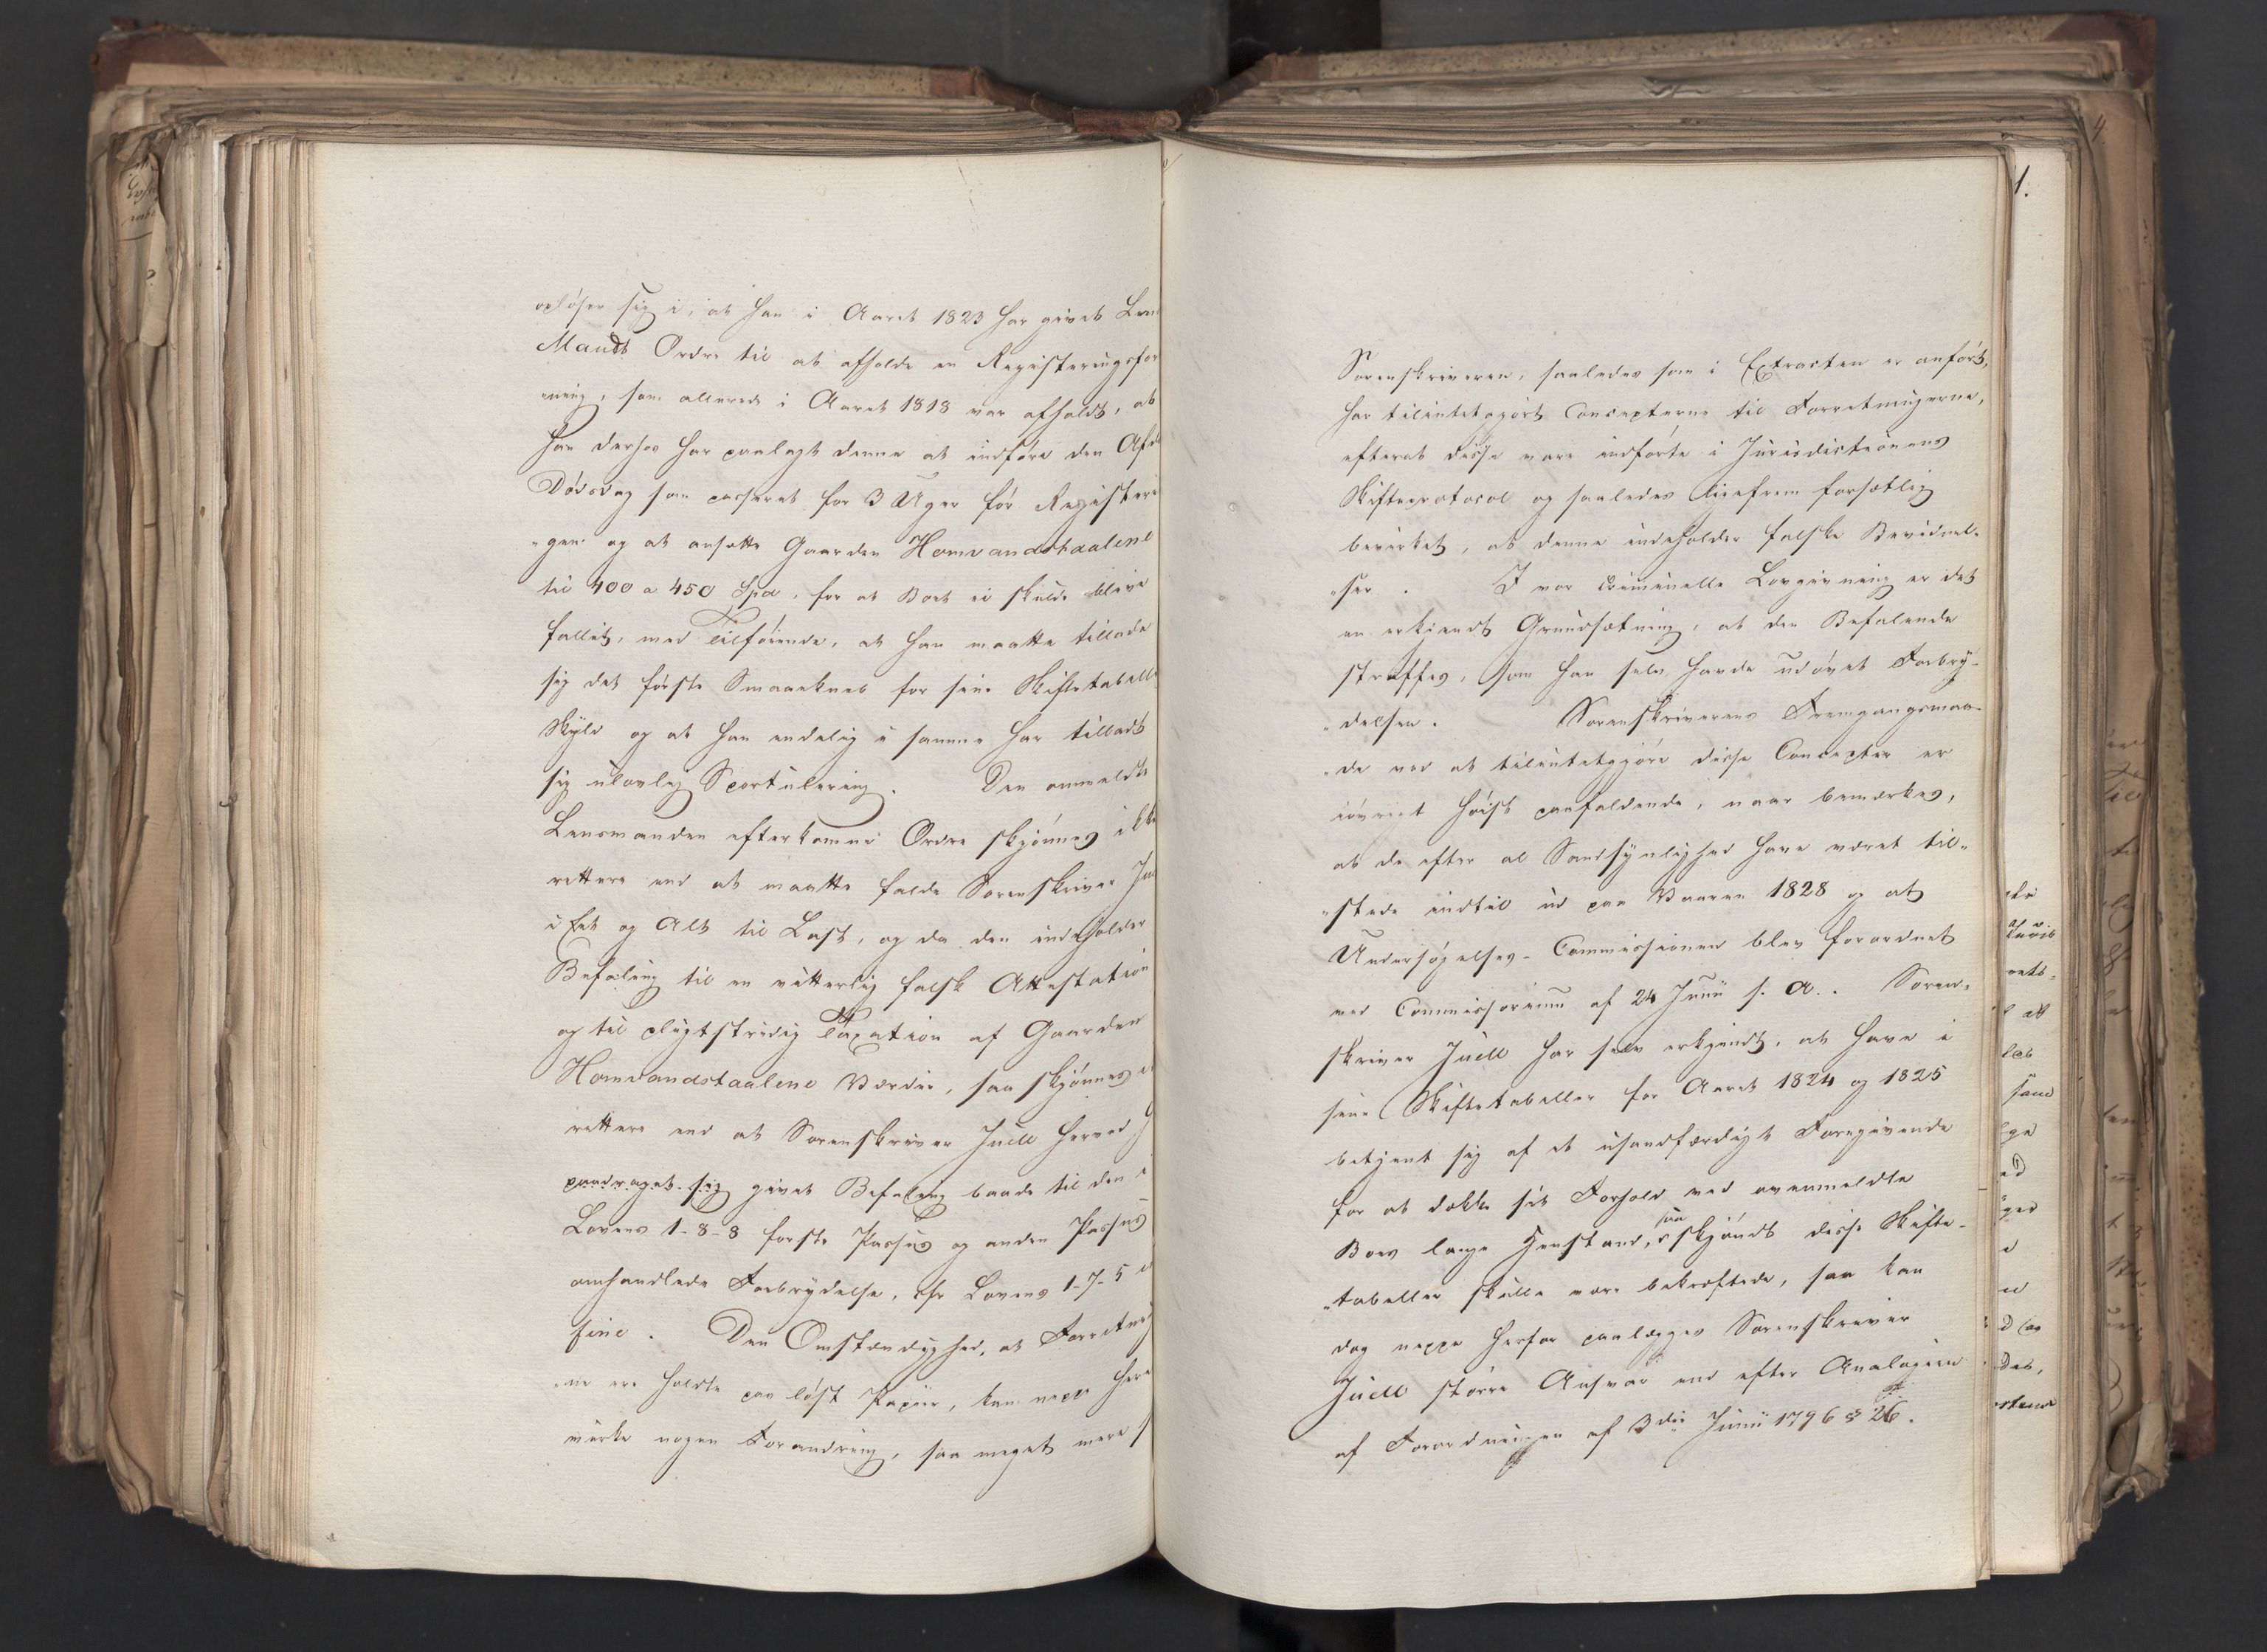 opløser sig i, at han i Aaret 1823 har givet Len
Mandt Ordre til at afholde en Registeringsfor
ning, som allerede i Aaret 1818 var afholdt, at
han derhos har paalagt denne at indføre den Afd
Dødsdag som passeret for 3 Uger før Registeri
"gen og at ansætte Gaarden Homvandstaalene
til 400 a 450 Spd, for at Boet ei skulde blive
fallit, med Tilføiende, at han maatte tillade
sig det første Smaaekneb for sine Skiftetabelle
Skyld og at han endelig i samme har tilladt
sig ulovlig Sportulering. Den anmeldte
Lensmanden efterkomne Ordre skjønnes ikke
rettere end at maatte falde Sorenskriver Ju
i Eet og Alt til Last, og da den indeholder
Befaling til en vitterlig falsk Attestation
og til pligtstridig Taxation af Gaarden
Homvandstaalene Værdie, saa skjønnes ei
rettere end at Sorenskriver Juell herved
paadraget sig givet Befaling baade til den i
Lovens 1-8-8 første Passus og anden Passus
omhandlede Forbrydelse, cfr Lovens 1-7-5 i
fine. Den Omstændighed, at Forretning
"ne ere holdte paa løst Papiir, kan neppe heri
virke nogen Forandring, saa meget mere s
Sorenskriveren, saaledes som i Extracten er anført,
har tilintetgjort Concepterne til Forretningerne,
efterat disse vare indførte i Jurisdictionens
Skifteprotocol og saaledes ligefrem forsætlig
bevirket, at denne indeholder falske Bevidnel-
"ser. I vor criminelle Lovgivning er det
en erkjendt Grundsætning, at den Befalende
straffes, som han selv havde udøvet Forbry-
"delsen. Sorenskriverens Fremgangsmaa-
"de ved at tilintetgjøre disse Concepter er
iøvrigt høist paafaldende, naar bemærkes,
at de efter al Sandsynlighed have været til-
"stede indtil ud paa Vaaren 1828 og at
Undersøgelses-Commissionen blev forordnet
ved Commissorium af 24 Junii s. A. Soren-
skriver Juell har selv erkjendt, at have i
sine Skiftetabeller for Aaret 1824 og 1825
betjent sig af et usandfærdigt Foregivende
for at dække sit Forhold ved ovenmeldte
Boes lange Henstand, skjøndt disse Skifte-
saa
"tabeller skulle være bekræftede, saa kan
dog neppe herfor paalægges Sorenskriver
Juell større Ansvar end efter Analogien
af Forordningen af 3die Junii 1796 § 26.